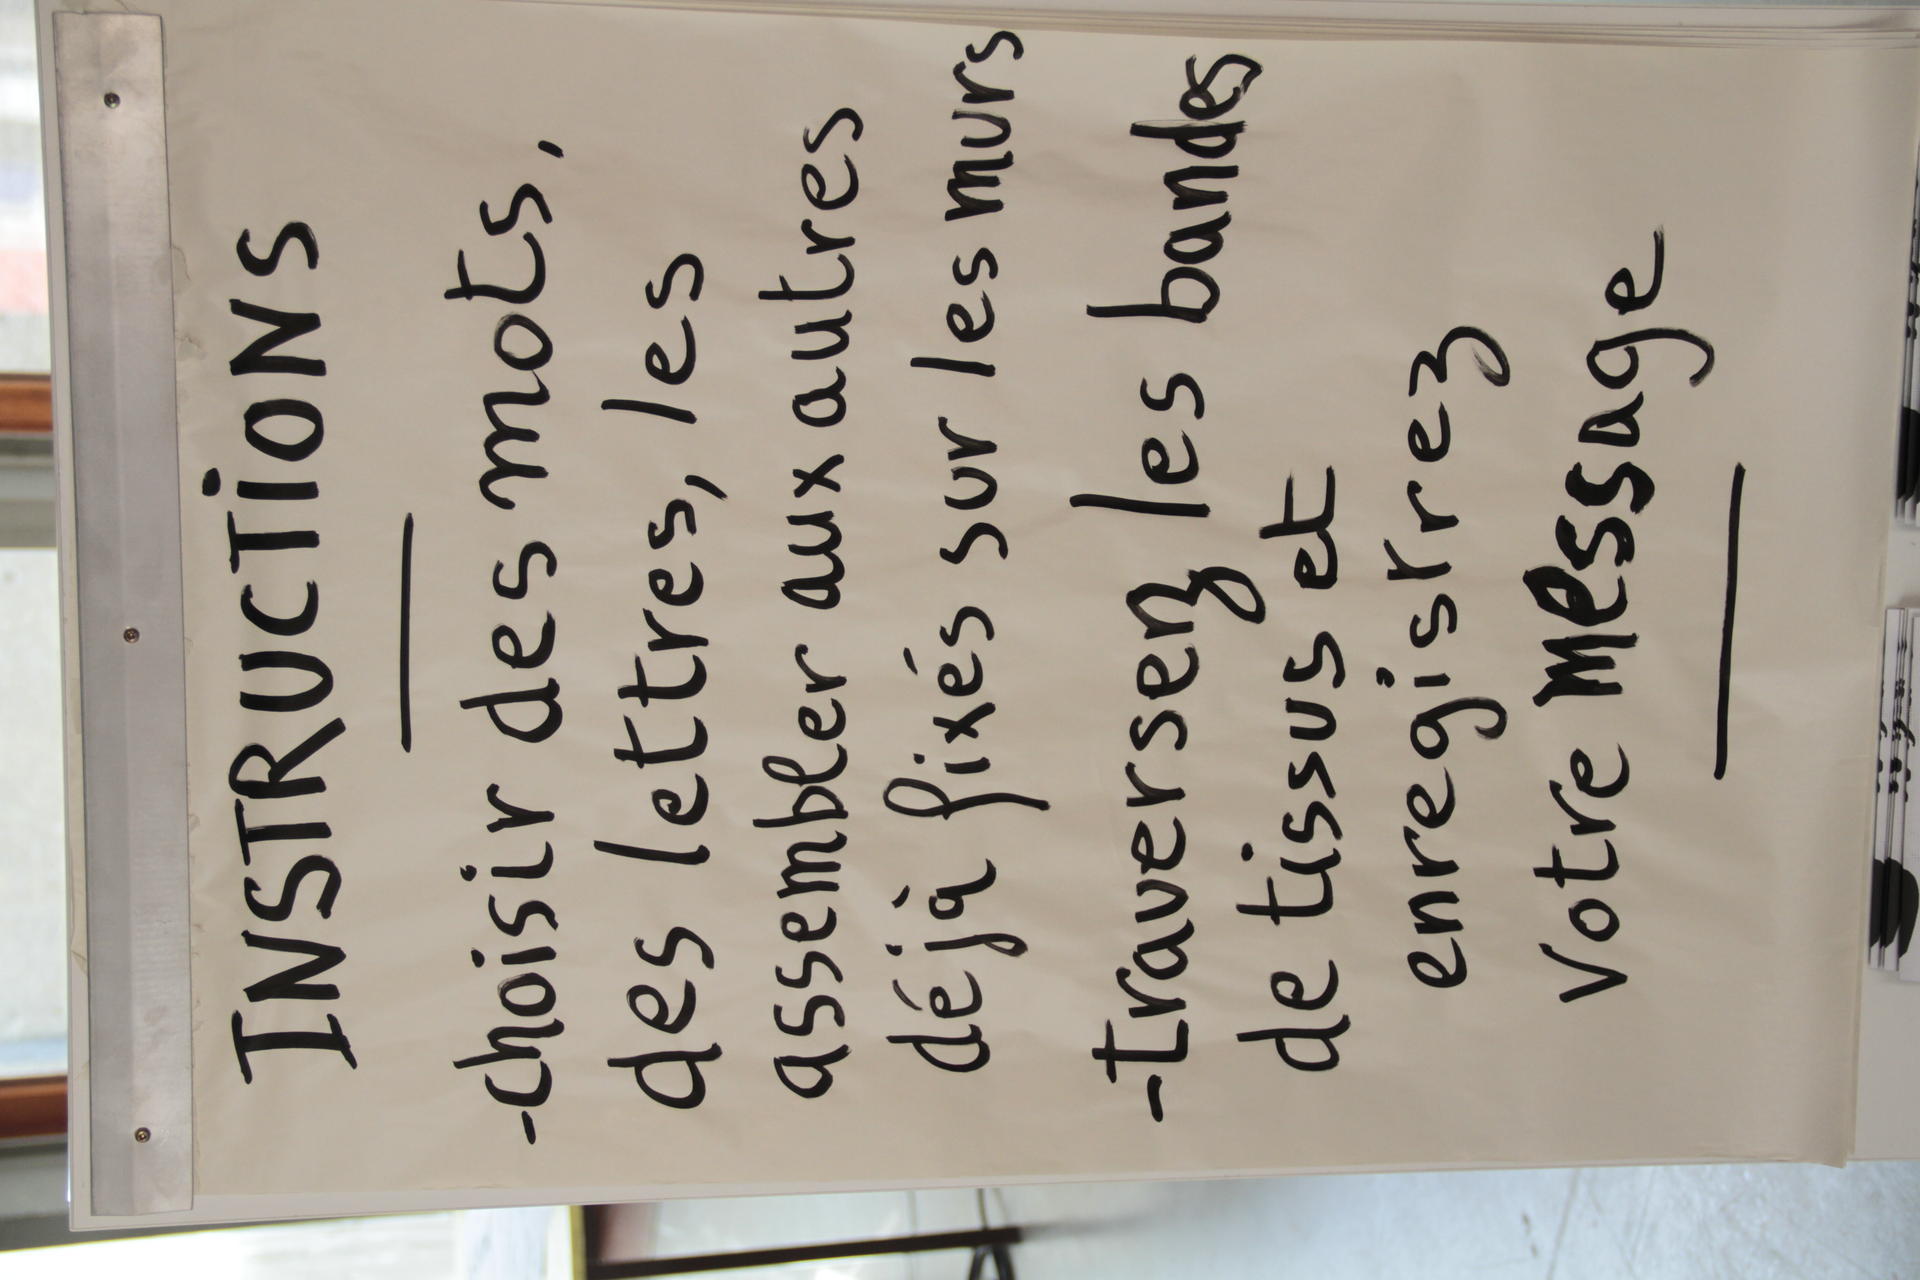 INSTRUCTIONS
-choisir des mots,
des lettres, les
assembler aux autres
déjà fixés sur les murs
-traversez les bandes
de tissus et
enregistrez
votre message